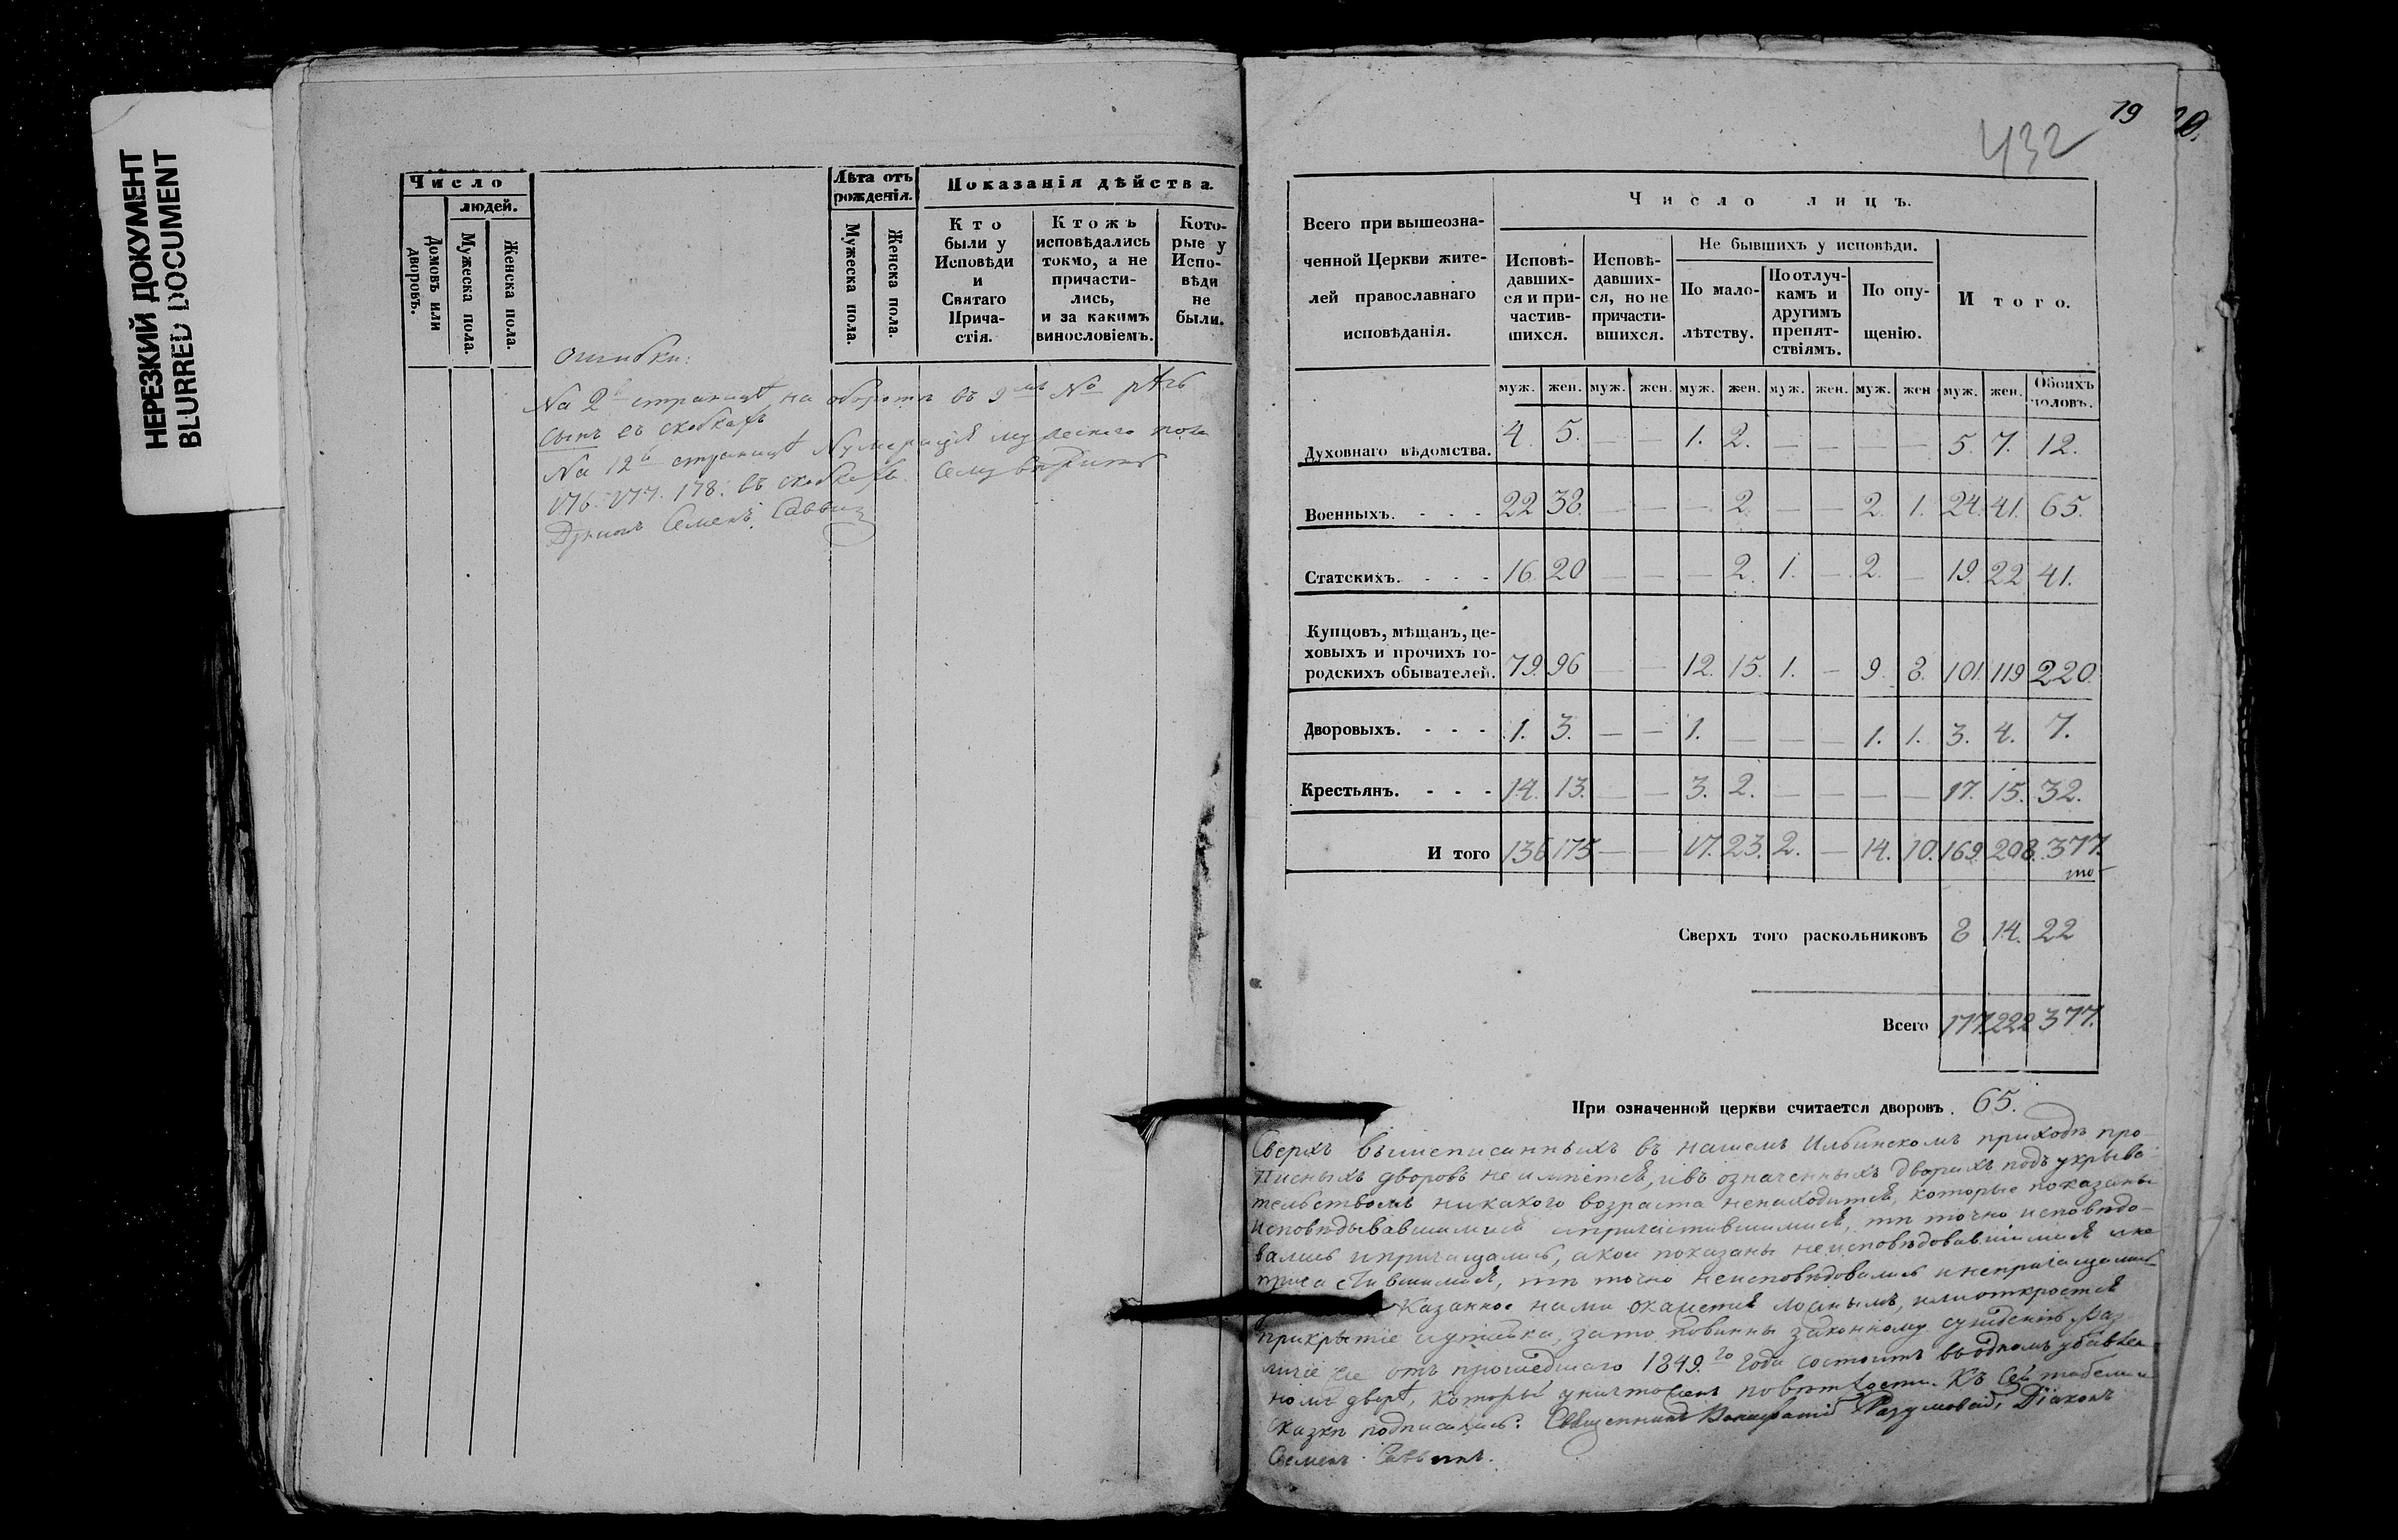 НЕРЕЗКИЙ ДОКУМЕНТ
BLURRED DOCUMENT
Число
людей.
Домовъ или дворовъ.
Мужеска пола.
Женска пола.
Лѣта отъ рожденія.
Мужеска пола.
Женска пола.
Показанія дѣйства.
Кто были у Исповѣди и Святаго Прича- стія.
Ктожъ исповѣдались токмо, а не причасти- лись, и за какимъ винословіемъ.
Кото- рые у Испо- вѣди не были.
Ошибки:
На 2й страницѣ на оборотѣ въ 9мъ № рѣчь
сынъ въ скобкахъ
На 12й страницѣ Нумерація мужескаго пола
176. 177. 178. въ скобкахъ. Сему вѣритъ
Діаконъ Семенъ Саввинъ
19
20.
432
Всего при вышеозна-
ченной Церкви жите-
лей православнаго
исповѣданія.
Число лицъ.
Исповѣ- давших- ся и при- частив- шихся.
Исповѣ- давших- ся, но не причасти- вшихся.
Не бывшихъ у исповѣди.
По мало- лѣтству.
По отлуч- камъ и другимъ препят- ствіямъ.
По опу- щенію.
И того.
муж. жен. муж. жен. муж. жен. муж. жен. муж. жен муж. жен. Обоихъ половъ.
Духовнаго вѣдомства. 4. 5. — — 1. 2. — — — — 5. 7. 12.
Военныхъ. - - - 22 38. — — — 2. — — 2. 1. 24. 41. 65.
Статскихъ. - - - 16. 20 — — — 2. 1. — 2. — 19. 22 41.
Купцовъ, мѣщанъ, це-
ховыхъ и прочихъ го-
родскихъ обывателей. 79. 96 — — 12. 15. 1. — 9. 8. 101. 119 220.
Дворовыхъ. - - - 1. 3. — — 1. — — — 1. 1. 3. 4. 7.
Крестьянъ. - - - 14. 13. — — 3. 2. — — — — 17. 15. 32.
И того 136 175 — — 17. 23. 2. — 14. 10. 169. 208. 377.
Сверхъ того раскольниковъ 8 14. 22
Всего 177. 222 377.
При означенной церкви считается дворовъ. 65.
Сверхъ вышеписанныхъ въ нашемъ Ильинскомъ приходѣ про-
писныхъ дворовъ не имѣется, и въ означенныхъ дворахъ подъ укрыва-
тельствомъ никакого возраста ненаходится, которые показаны
исповѣдывавшимися и причастившимися, тѣ точно исповѣдо-
вались и причащались, а кои показаны неисповѣдовавшимися и не
причастившимися, тѣ точно неисповѣдовались и непричащались
казанное нами окажется ложнымъ, или откроется
прикрытіе и утайка, за то повинны законному сужденію. Раз-
личіе же отъ прошедшаго 1849.го года состоитъ въ одномъ убавлен-
номъ дворѣ, который уничтоженъ по ветхости. Къ сей табели и
сказкѣ подписались: Священникъ Вонифатій Разумовъ, Діаконъ
Семенъ Саввинъ.